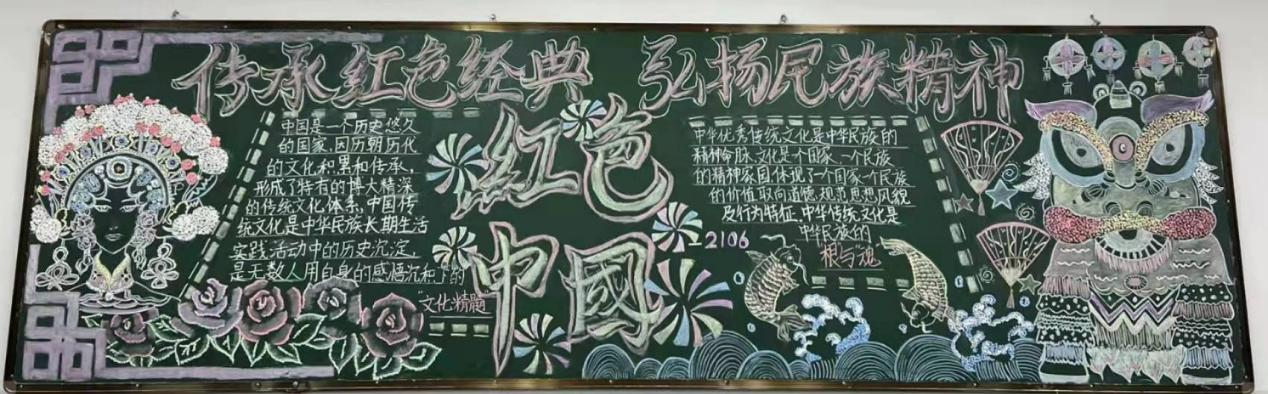 传承红色经典 弘扬民族精神
中国是一个历史悠久
的国家,因历朝历代
的文化积累和传承,
形成了特有的博大精深
的传统文化体系,中国传
统文化是中华民族长期生活
实践活动中的历史沉淀,
是无数人用自身的感悟沉积下的
文化精髓
红色
中國
2106
中华优秀传统文化是中华民族的
精神命脉,文化是一个国家、一个民族
的精神家园,体现了一个国家一个民族
的价值取向道德规范思想风貌
及行为特征,中华传统文化是
中华民族的
根与魂